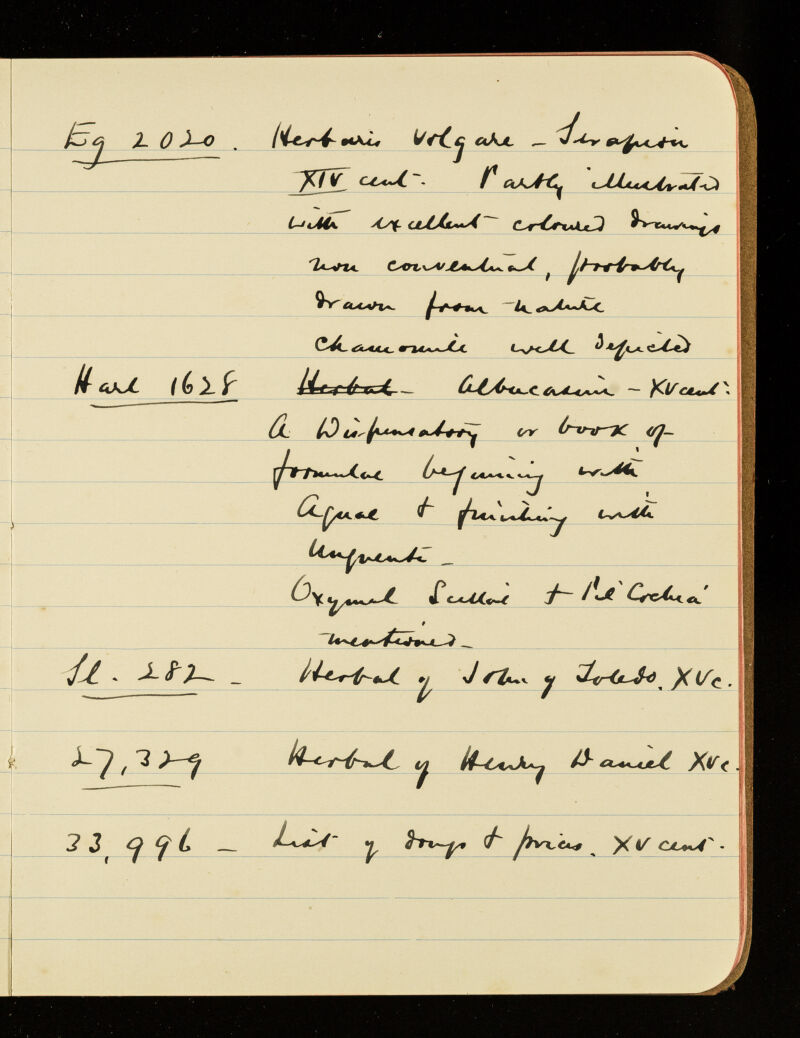 Eg 2020. Herbaris Volgare - Serapion
XIV cent. Partly illustrated
with excellent coloured drawings
non conventual, probably
drawn from nature
Chamomile well depicted
Harl 1628 Herbal - Albucasim - XV cent.
A Dispensatory or book of
formulae beginning with
Aquae & finishing with
Unguenta -
Oxymel Scillae & Pil Cochia
mentioned -
Sl. 282 - Herbal of John of Toledo. XVc.
27,329 Herbal of Henry Daniel XVc.
33,996 - List of drugs & prices. XV cent.